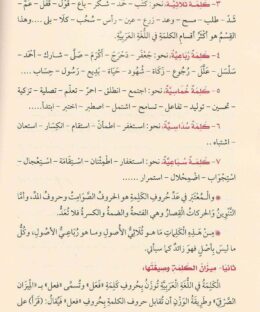 ٣ - كلمة ثلاثية، نحو: كتب – حمد – شكر – باع – قول – قفل – عمّ –
شدّ – طلب – مسح – وعد – زرع – عين – رأس – سُحُب – كلا – بلى ... وهذا
القِسْمُ هو أكثر أقسام الكَلِمَةِ في اللُّغَةِ العَرَبيَّةِ.
٤ - كلمة رباعيّة، نحو: جعْفَر – دَحْرَجَ – أكْرَمَ – صَلَّى – شارك – أحْمَد –
سَلْسَل – علَّلَ – رُجُوع – زكاة – شُهُود – حَيَاة – بَدِيع – رَسُول – حِسَاب ....
٥ - كلمة خُماسيَّة، نحو: اجتمع – انطلق – احمرّ – تعلّم – تصلية – تزكية
– تحسين – توليد – تفاعل – تسامح – اشتمل – اصطبر – اختبأ – امتحن ...
٦ - كلمة سُداسيّة، نحو: استغفر – اطمأنّ – استقام – انكِسَار – استعان –
اشتباه ..
٧ - كلمة سُباعيّة، نحو: استغفار – اطْمِئْنَان – اسْتِقَامَة – اسْتِعْجَال –
اسْتِجْوَاب – اضْمِحْلَال – استمرار ......
● والمُعْتَبَر في عَدِّ حُروفِ الكَلِمَةِ هو الحُروفُ الصَّوَامِتُ وحروفُ المَدِّ، وأمَّا
التَّنْوِينُ والحركاتُ القِصارُ وهي الفتحةُ والضمة والكسرة فلا تُعَدُّ.
● ومِنْ هذِهِ الكَلِمَاتِ مَا هو ثُلَاثِيُّ الأُصولِ وما هو رُبَاعِيُّ الأُصولِ، وكُلُّ
ما ليسَ بأصْلٍ فهو زائدٌ كما سيأتي.
ثانياً- ميزانُ الكلمة وصيغتُها:
الكَلِمَةُ في اللُّغَةِ العَرَبِيَّةِ تُوزَنُ بِحُروفِ كَلِمَةِ «فَعَلَ» وتُسمّى «فعل» بـ «المِيزَان
الصَّرْفِيِّ» وطَرِيقَةُ الوَزْنِ أن تُقابل حروف الكلمة بحروفِ «فعل» فيُقالُ: (قَرَأَ) على